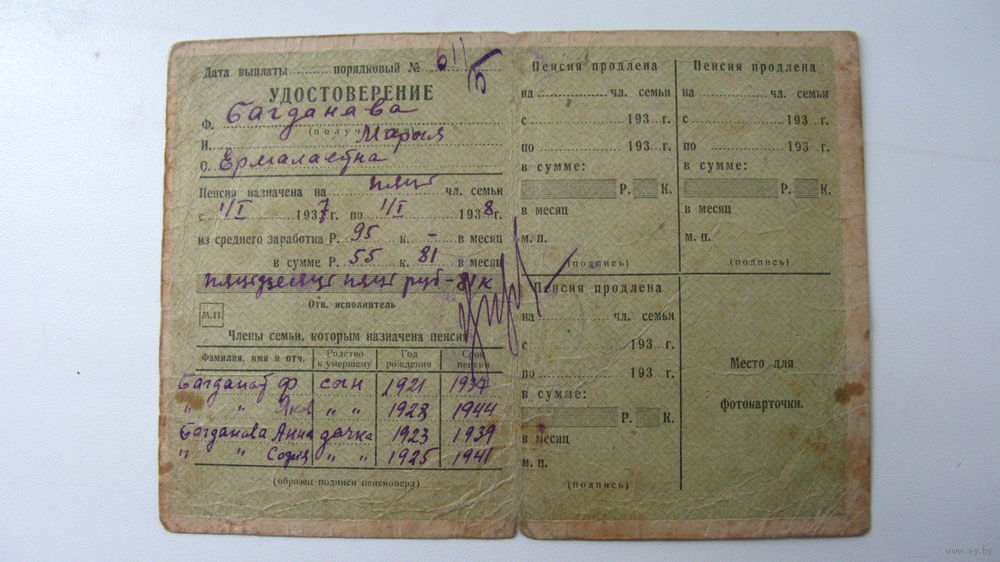 Дата выплаты ........ порядковый № 611/Б
УДОСТОВЕРЕНИЕ
Ф. Багданава
(получ
И. Марыя
О.
Пенсия назначена на пяць чл. семьи
с 1/I 1937 г. по 1/I 1938 г.
из среднего заработка Р. 95 к. - в месяц
в сумме Р. 55 к. 81 в месяц
пяцьдзесяць пяць руб - 81 к
Отв. исполнитель
М.П.
Члены семьи, которым назначена пенсия
Фамилия, имя и отч. Родство к умершему Год рождения Срок пенсии
Багданаў Ф сын 1921 1937
" " Якаў " " 1928 1944
Багданова Анна дачка 1923 1939
" " София " " 1925 1941
(образец подписи пенсионера)
Пенсия продлена
на ........ чл. семьи
с ........ 193 г.
по ........ 193 г.
в сумме:
Р. К.
в месяц
м. п.
(подпись)
Пенсия продлена
на ........ чл. семьи
с ........ 193 г.
по ........ 193 г.
в сумме:
Р. К.
в месяц
м. п.
(подпись)
Пенсия продлена
на ........ чл. семьи
с ........ 193 г.
по ........ 193 г.
в сумме:
Р. К.
в месяц
м. п.
(подпись)
Место для
фотокарточки.
www.ay.by